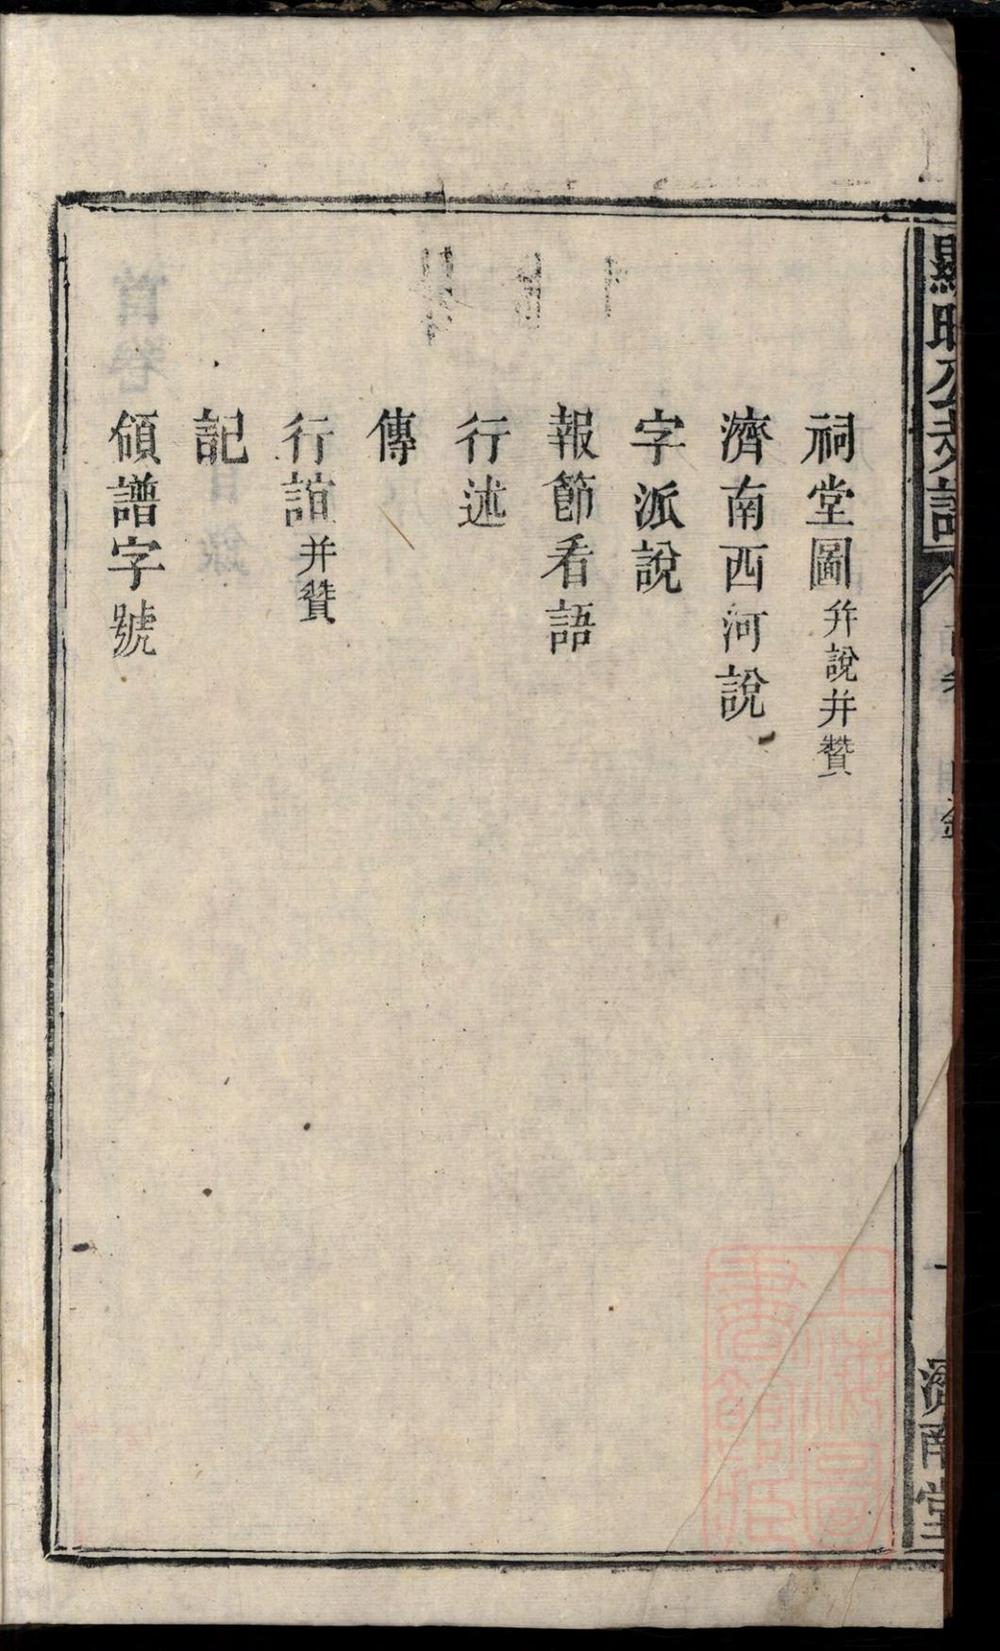 祠堂圖并說并贊
濟南西河說
字派說
報節看語
行述
傳
行誼并贊
記
領譜字號
濟南堂